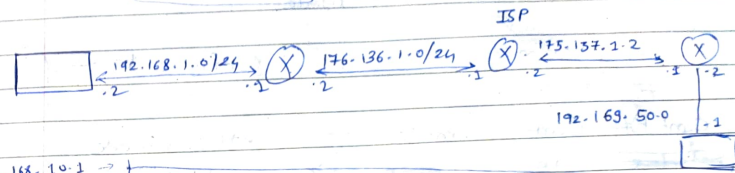 ISP
192.168.1.0/24 X 176.136.1.0/24 X 175.137.1.2 X
.2 .1 .2 .1 .2 .1 .2
192.169.50.0 .1
168.10.1 →